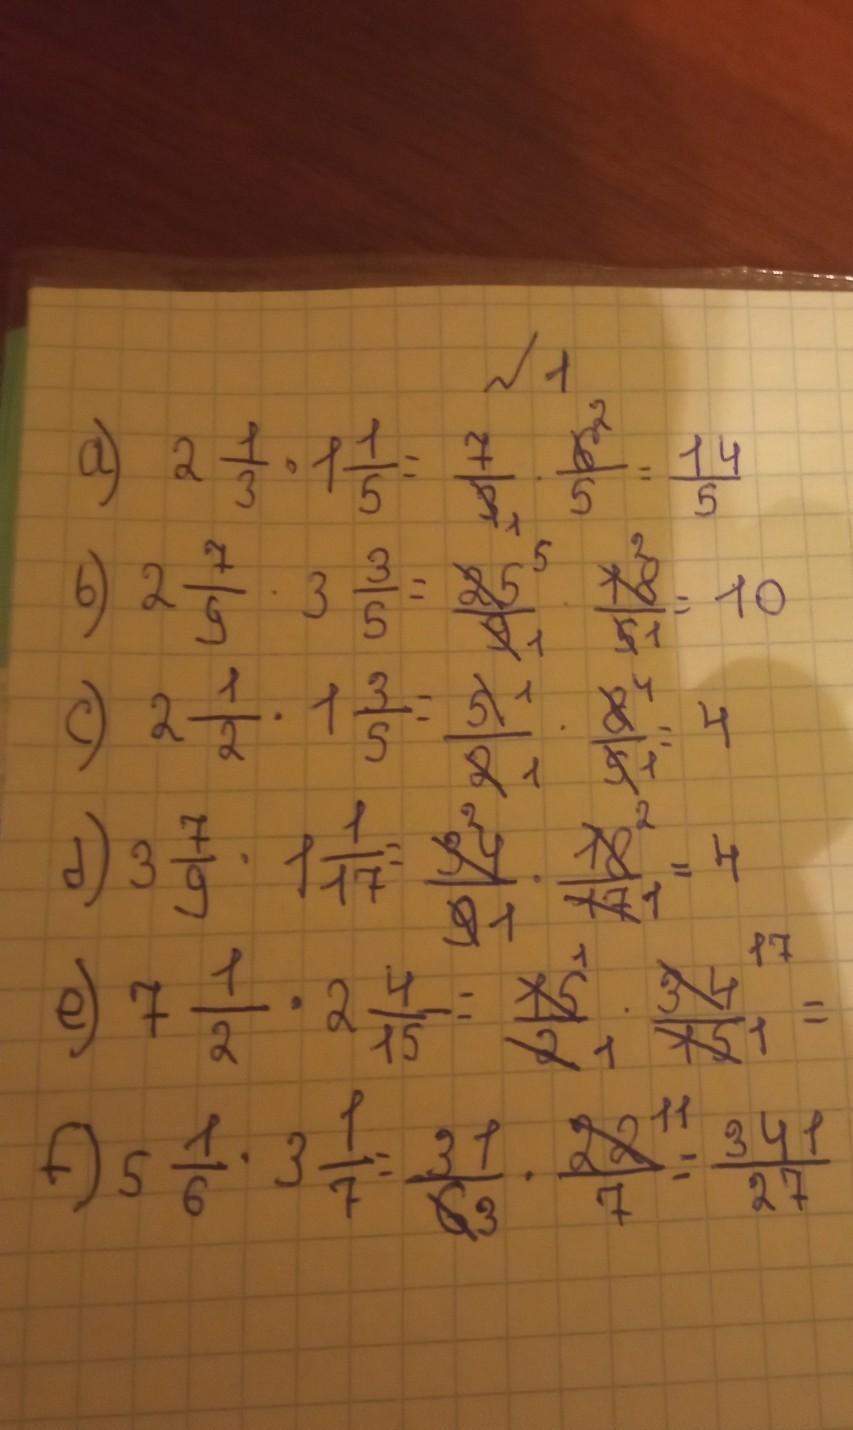 √1
a) 2 1/3 · 1 1/5 = 7/3 1 · 6 2/5 = 14/5
b) 2 7/9 · 3 3/5 = 25 5/9 1 · 18 2/5 1 = 10
c) 2 1/2 · 1 3/5 = 5 1/2 1 · 8 4/5 1 = 4
d) 3 7/9 · 1 1/17 = 34 2/9 1 · 18 2/17 1 = 4
e) 7 1/2 · 2 4/15 = 15 1/2 1 · 34 17/15 1 =
f) 5 1/6 · 3 1/7 = 31/6 3 · 22 11/7 = 341/27